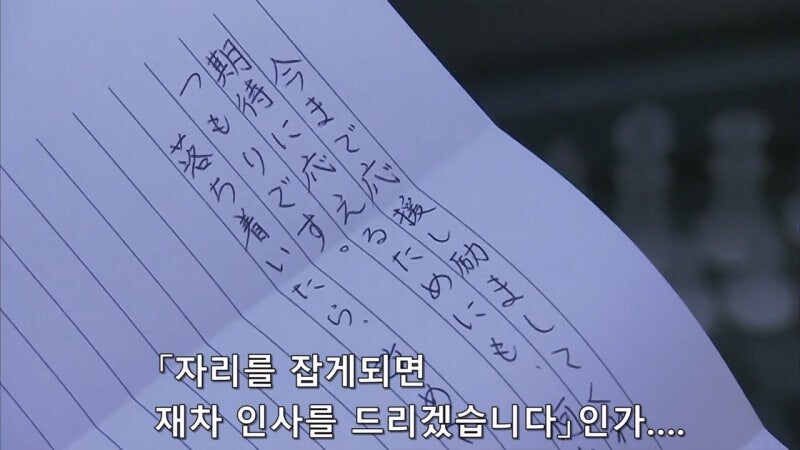 今まで応援し励まして く
期待に応えるためにも、
つもりです。
落ち着いたら、
「자리를 잡게되면
재차 인사를 드리겠습니다」인가....